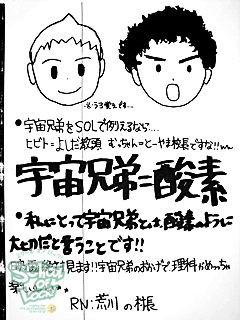 -※うろ覚えです…-
●宇宙兄弟をSOLで例えるなら…
ヒビト=よしだ教頭 むっちゃん=とーやま校長ですな!!
宇宙兄弟=酸素
●私にとって宇宙兄弟とは、酸素のように
大切だと言うことです!!
見ます!!宇宙兄弟のおかげで理科がめっちゃ
RN:荒川の